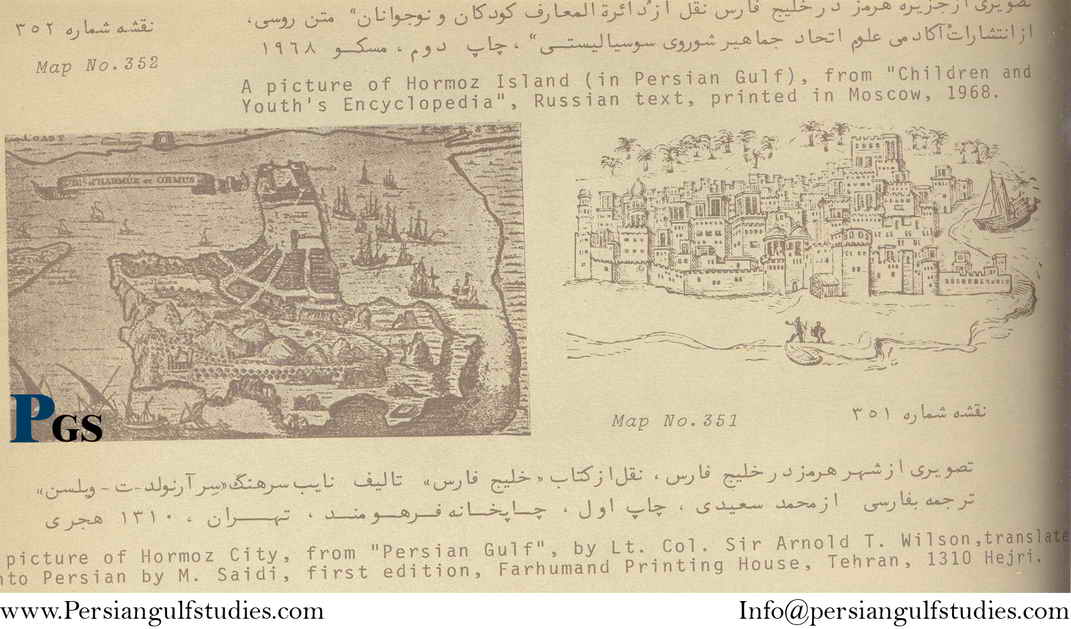 تصویری از جزیره هرمز در خلیج فارس نقل از "دائرة المعارف کودکان و نوجوانان" متن روسی،
از انتشارات آکادمی علوم اتحاد جماهیر شوروی سوسیالیستی" ، چاپ دوم ، مسکو ۱۹۶۸
نقشه شماره ۳۵۲
Map No.352
A picture of Hormoz Island (in Persian Gulf), from "Children and
Youth's Encyclopedia", Russian text, printed in Moscow, 1968.
COAST
HARMUZ or ORMUS
PGS
Map No.351
نقشه شماره ۳۵۱
تصویری از شهر هرمز در خلیج فارس ، نقل از کتاب «خلیج فارس» تالیف نایب سرهنگ «سر آرنولد-ت - ویلسن»
ترجمه بفارسی از محمد سعیدی ، چاپ اول ، چاپخانه فرهومند ، تهران ، ۱۳۱۰ هجری
picture of Hormoz City, from "Persian Gulf", by Lt. Col. Sir Arnold T. Wilson,translate
nto Persian by M. Saidi, first edition, Farhumand Printing House, Tehran, 1310 Hejri.
www.Persiangulfstudies.com
Info@persiangulfstudies.com